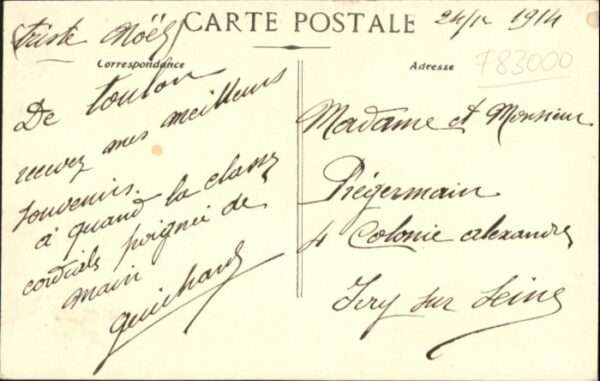 CARTE POSTALE
24/12 1914
triste Noël
Correspondance
Adresse
F83000
De toulon
recevez mes meilleurs
souvenirs.
à quand la classe
cordiale poignée de
main
Guichard
Madame et Monsieur
Prégermain
4 Colonie alexandre
Ivry sur Seine